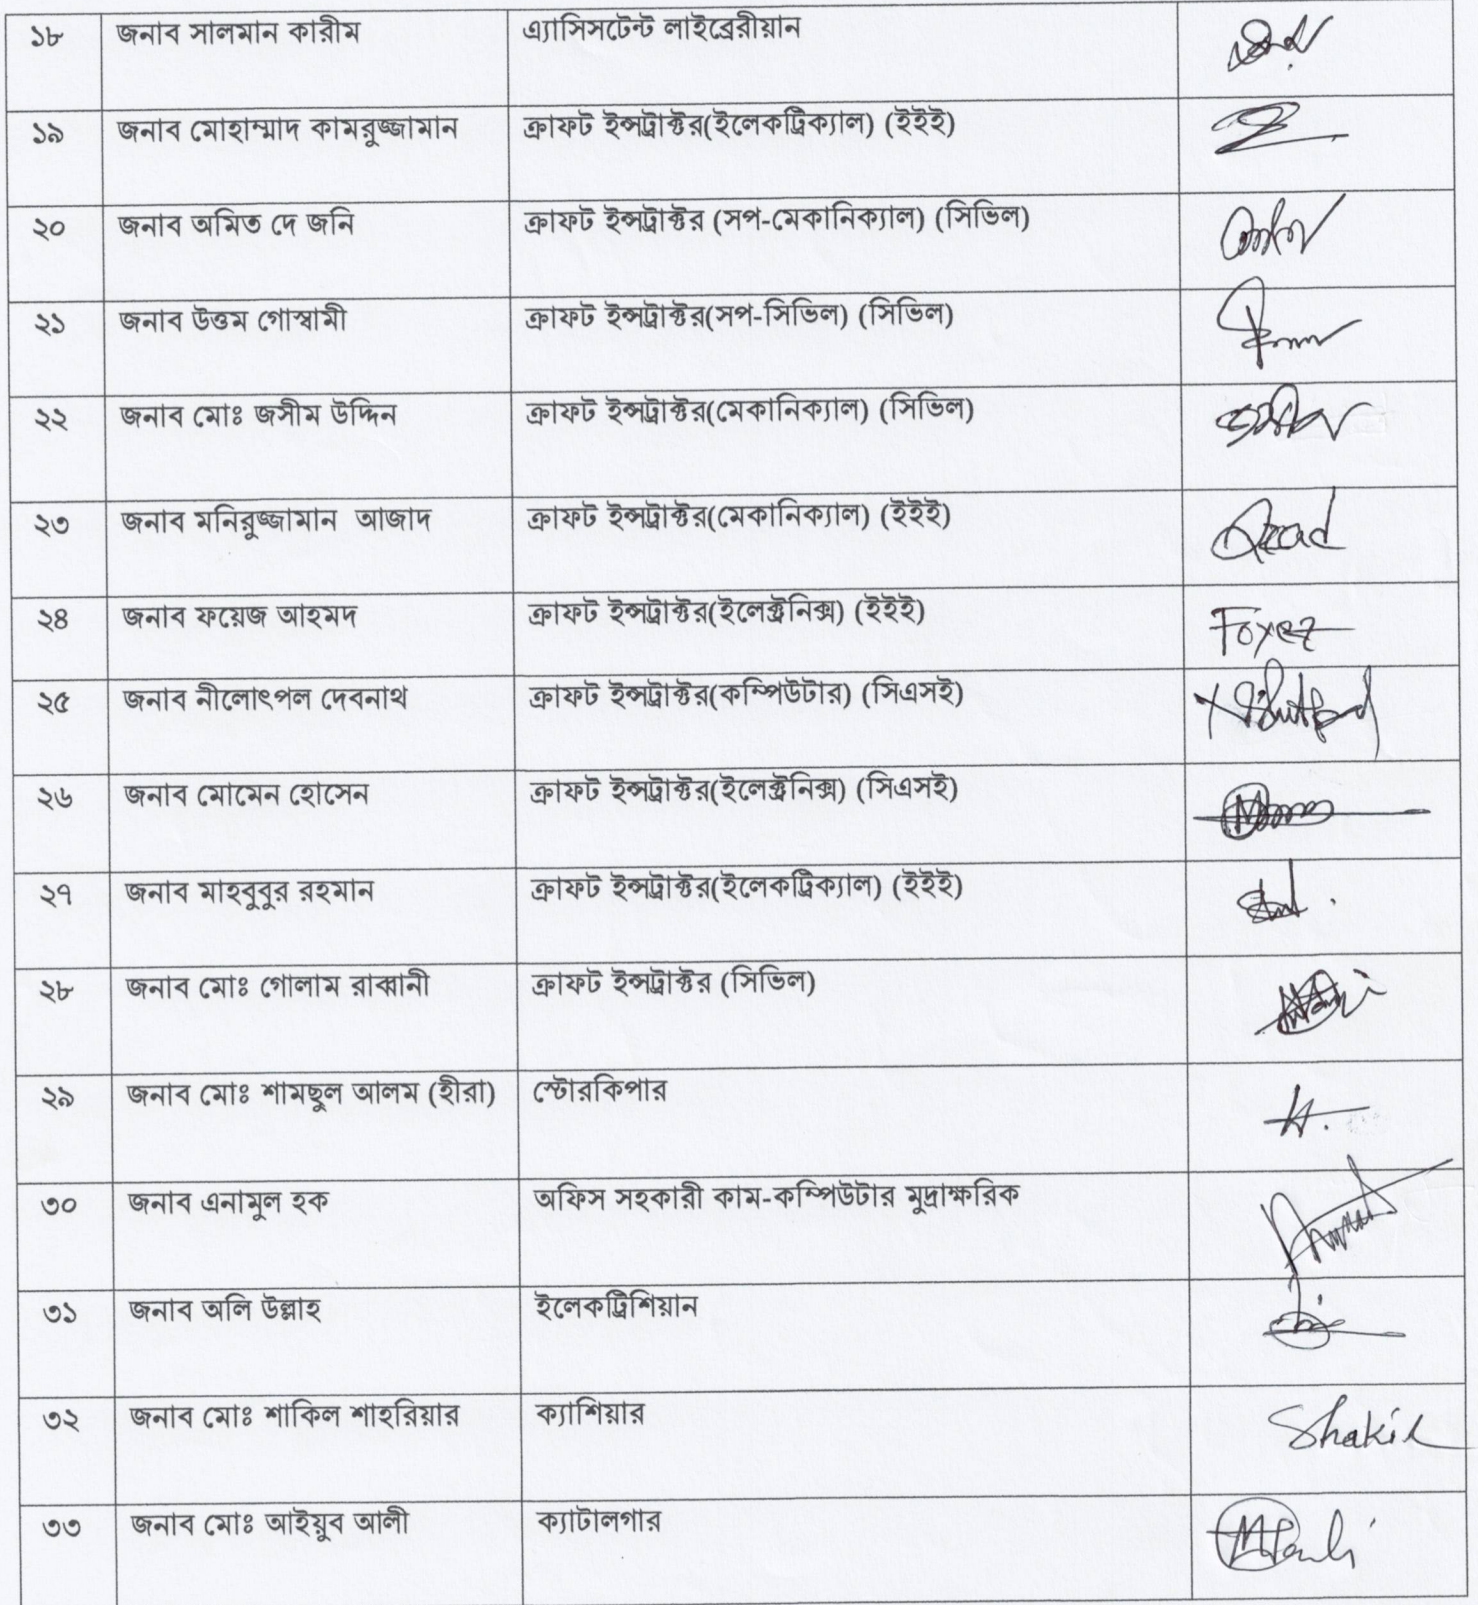 ১৮ জনাব সালমান কারীম এ্যাসিসটেন্ট লাইব্রেরীয়ান
১৯ জনাব মোহাম্মাদ কামরুজ্জামান ক্রাফট ইন্সট্রাক্টর(ইলেকট্রিক্যাল) (ইইই)
২০ জনাব অমিত দে জনি ক্রাফট ইন্সট্রাক্টর (সপ-মেকানিক্যাল) (সিভিল)
২১ জনাব উত্তম গোস্বামী ক্রাফট ইন্সট্রাক্টর(সপ-সিভিল) (সিভিল)
২২ জনাব মোঃ জসীম উদ্দিন ক্রাফট ইন্সট্রাক্টর(মেকানিক্যাল) (সিভিল)
২৩ জনাব মনিরুজ্জামান আজাদ ক্রাফট ইন্সট্রাক্টর(মেকানিক্যাল) (ইইই) Azad
২৪ জনাব ফয়েজ আহমদ ক্রাফট ইন্সট্রাক্টর(ইলেক্ট্রনিক্স) (ইইই) Foyez
২৫ জনাব নীলোৎপল দেবনাথ ক্রাফট ইন্সট্রাক্টর(কম্পিউটার) (সিএসই)
২৬ জনাব মোমেন হোসেন ক্রাফট ইন্সট্রাক্টর(ইলেক্ট্রনিক্স) (সিএসই)
২৭ জনাব মাহবুবুর রহমান ক্রাফট ইন্সট্রাক্টর(ইলেকট্রিক্যাল) (ইইই)
২৮ জনাব মোঃ গোলাম রাব্বানী ক্রাফট ইন্সট্রাক্টর (সিভিল)
২৯ জনাব মোঃ শামছুল আলম (হীরা) স্টোরকিপার
৩০ জনাব এনামুল হক অফিস সহকারী কাম-কম্পিউটার মুদ্রাক্ষরিক
৩১ জনাব অলি উল্লাহ ইলেকট্রিশিয়ান
৩২ জনাব মোঃ শাকিল শাহরিয়ার ক্যাশিয়ার Shakil
৩৩ জনাব মোঃ আইয়ুব আলী ক্যাটালগার